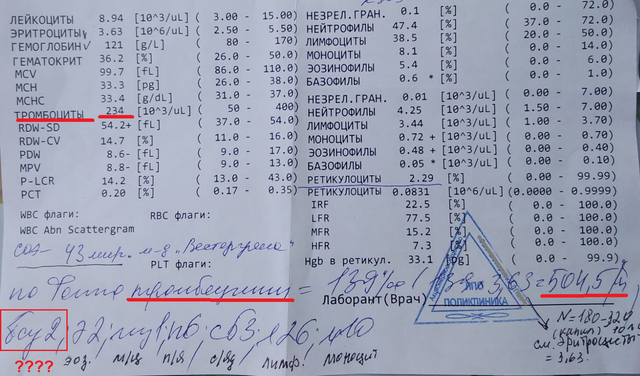 ЛЕЙКОЦИТЫ 8.94 [10^3/uL] ( 3.00 - 15.00)
ЭРИТРОЦИТЫ 3.63 [10^6/uL] ( 2.50 - 5.50)
ГЕМОГЛОБИН 121 [g/L] ( 80 - 170)
ГЕМАТОКРИТ 36.2 [%] ( 26.0 - 50.0)
MCV 99.7 [fL] ( 86.0 - 110.0)
MCH 33.3 [pg] ( 26.0 - 38.0)
MCHC 33.4 [g/dL] ( 31.0 - 37.0)
ТРОМБОЦИТЫ 234 [10^3/uL] ( 50 - 400)
RDW-SD 54.2+ [fL] ( 37.0 - 54.0)
RDW-CV 14.7 [%] ( 11.0 - 16.0)
PDW 8.6- [fL] ( 9.0 - 17.0)
MPV 8.8- [fL] ( 9.0 - 13.0)
P-LCR 14.2 [%] ( 13.0 - 43.0)
PCT 0.20 [%] ( 0.17 - 0.35)
WBC флаги: RBC флаги:
WBC Abn Scattergram
PLT флаги:
НЕЗРЕЛ.ГРАН. 0.1 [%] ( 0.0 - 72.0)
НЕЙТРОФИЛЫ 47.4 [%] ( 37.0 - 72.0)
ЛИМФОЦИТЫ 38.5 [%] ( 20.0 - 50.0)
МОНОЦИТЫ 8.1 [%] ( 0.0 - 14.0)
ЭОЗИНОФИЛЫ 5.4 [%] ( 0.0 - 6.0)
БАЗОФИЛЫ 0.6 * [%] ( 0.0 - 1.0)
НЕЗРЕЛ.ГРАН. 0.01 [10^3/uL] ( 0.00 - 7.00)
НЕЙТРОФИЛЫ 4.25 [10^3/uL] ( 1.50 - 7.00)
ЛИМФОЦИТЫ 3.44 [10^3/uL] ( 1.00 - 3.70)
МОНОЦИТЫ 0.72 + [10^3/uL] ( 0.00 - 0.70)
ЭОЗИНОФИЛЫ 0.48 + [10^3/uL] ( 0.00 - 0.40)
БАЗОФИЛЫ 0.05 * [10^3/uL] ( 0.00 - 0.10)
РЕТИКУЛОЦИТЫ 2.29 [%] ( 0.00 - 99.99)
РЕТИКУЛОЦИТЫ 0.0831 [10^6/uL] (0.0000 - 0.9999)
IRF 22.5 [%] ( 0.0 - 100.0)
LFR 77.5 [%] ( 0.0 - 100.0)
MFR 15.2 [%] ( 0.0 - 100.0)
HFR 7.3 [%] ( 0.0 - 100.0)
Hgb в ретикул. 33.1 [pg] ( 0.0 - 99.9)
СОЭ - 43 мм/ч. м-д „Вестергрена"
по Фонио тромбоциты = 139‰ (139 · 3,63 = 504,5
Лаборант(Врач)
ПОЛИКЛИНИКА
э2, п6, с53, л26,
эоз. м/ц п/я с/я лимф. моноцит
????
N=180-320
(капил)
см. эритроциты
= 3,63.